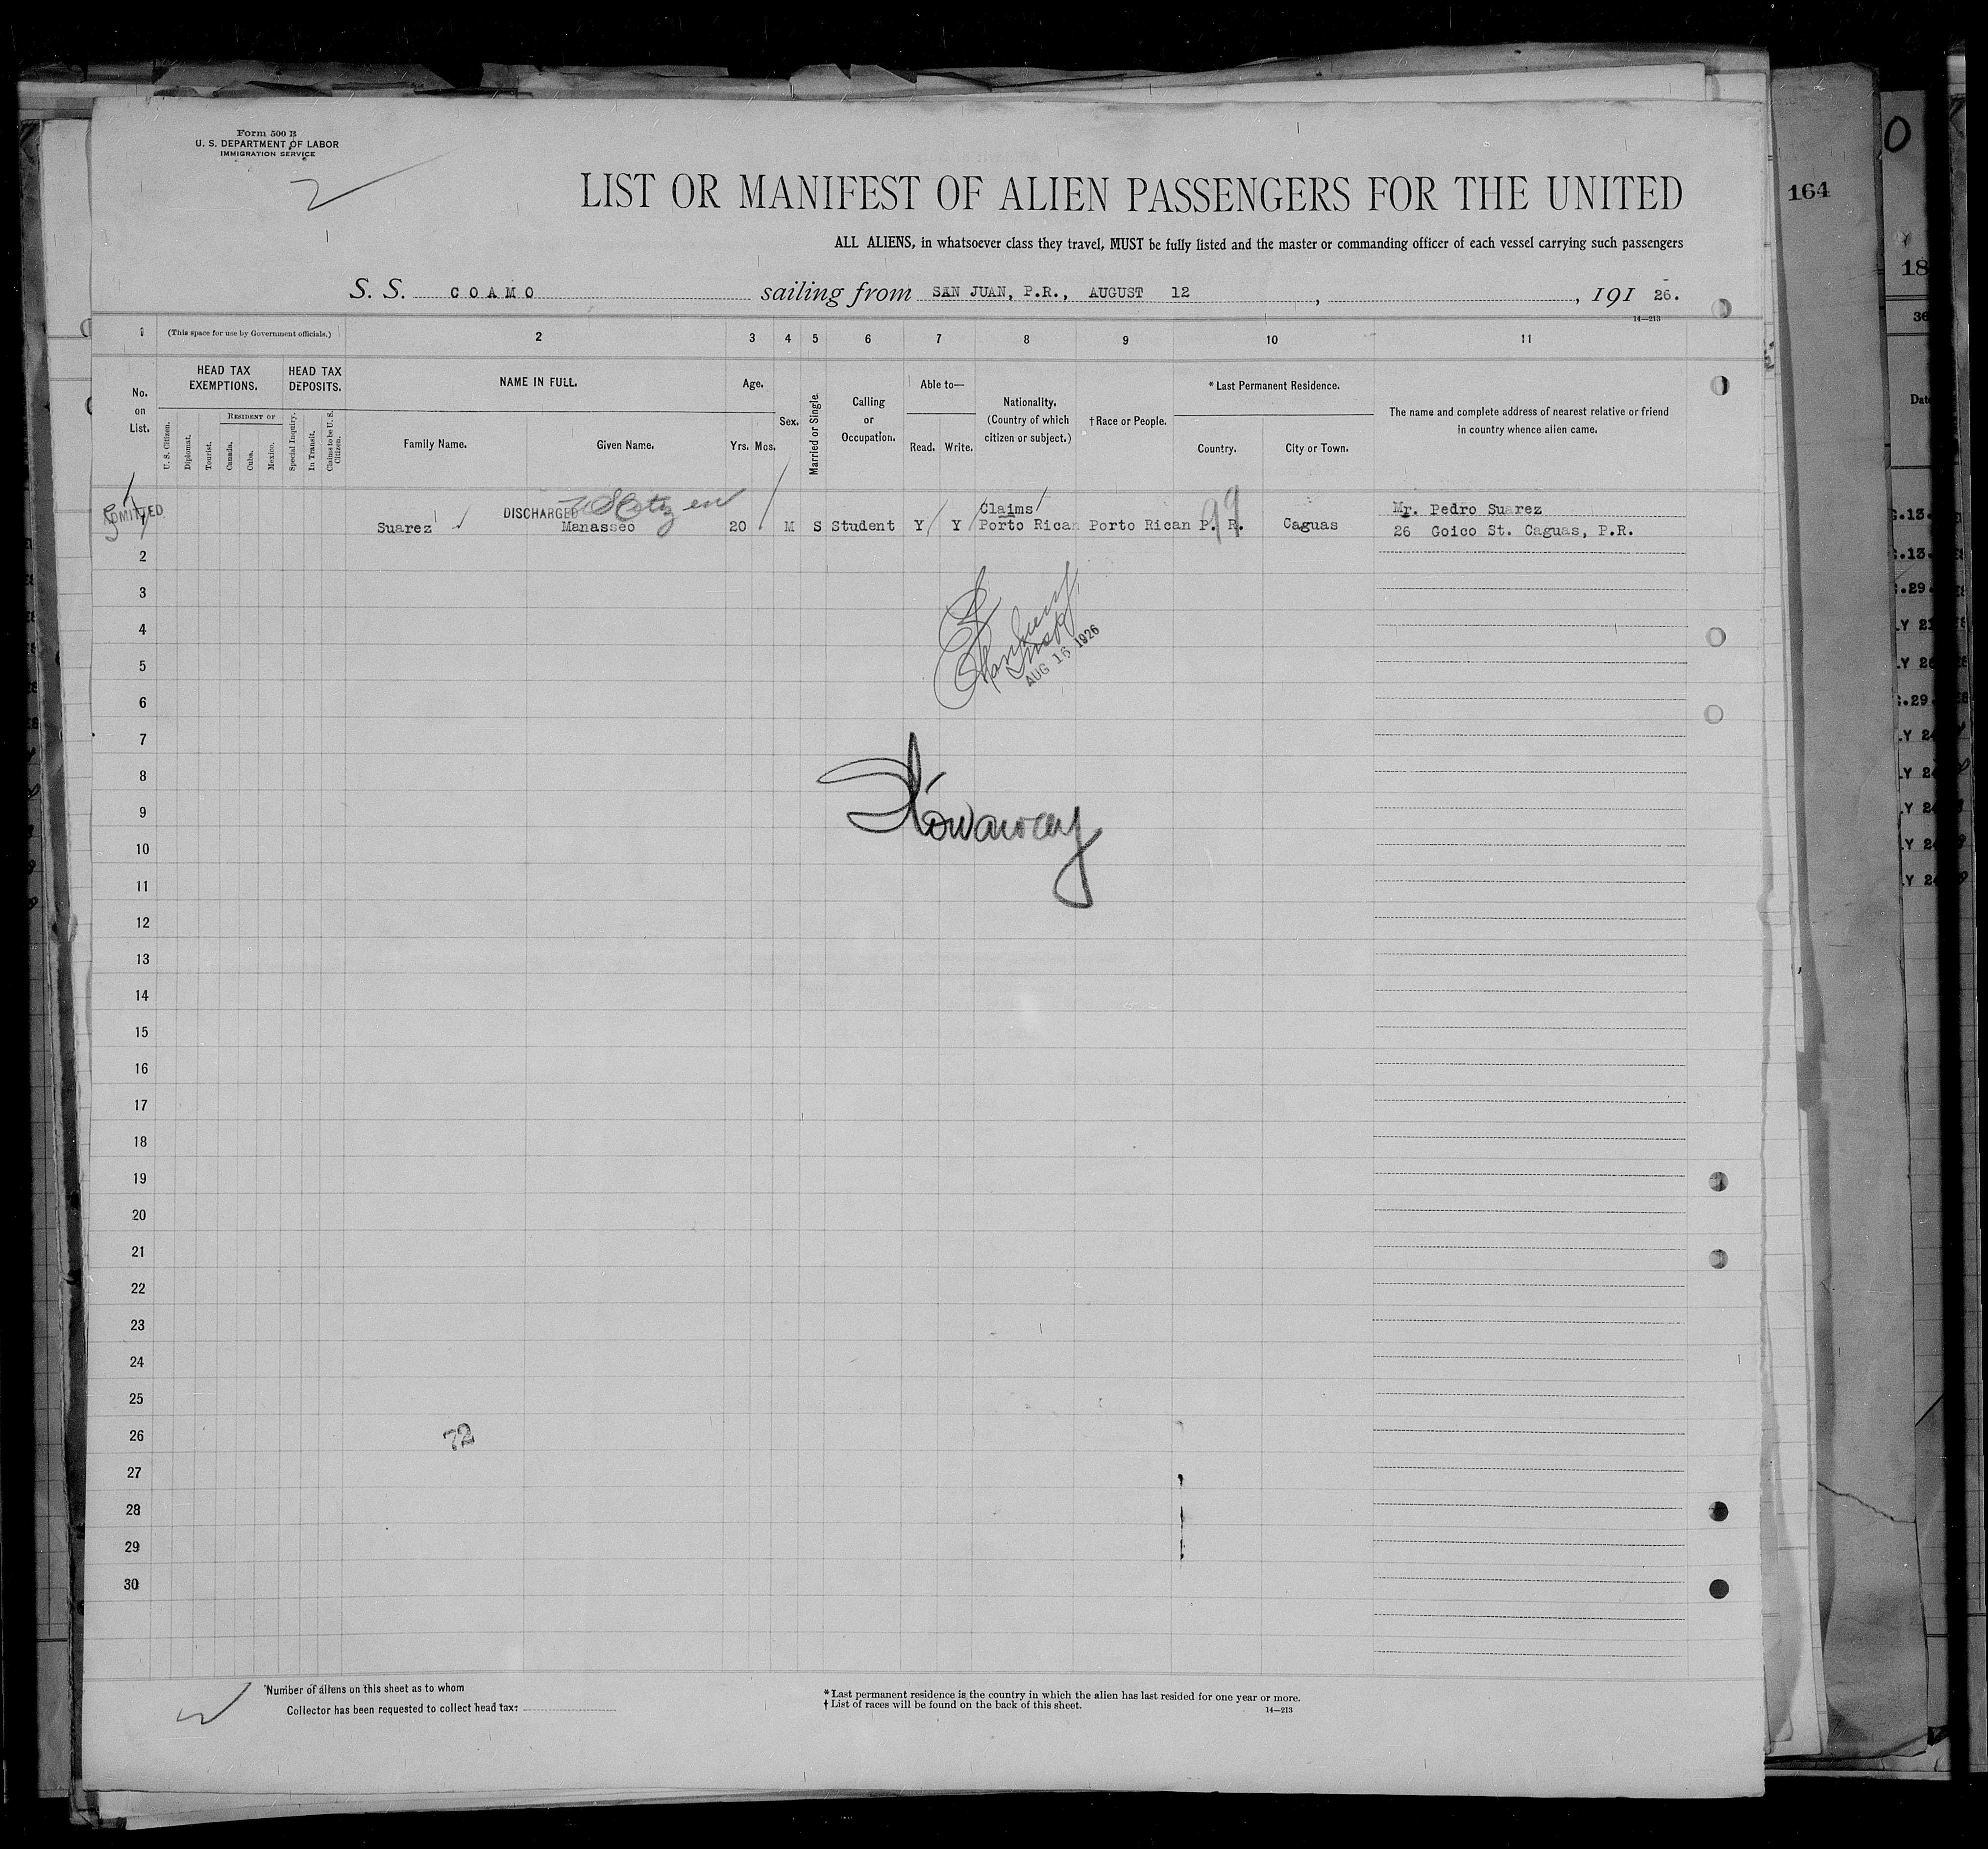 Form 500 B
U. S. DEPARTMENT OF LABOR
IMMIGRATION SERVICE
2
LIST OR MANIFEST OF ALIEN PASSENGERS FOR THE UNITED
164
ALL ALIENS, in whatsoever class they travel, MUST be fully listed and the master or commanding officer of each vessel carrying such passengers
S. S. COAMO sailing from SAN JUAN, P.R., AUGUST 12, , 191 26.
14—213
1 (This space for use by Government officials.) 2 3 4 5 6 7 8 9 10 11
No. on List.
HEAD TAX EXEMPTIONS.
HEAD TAX DEPOSITS.
U. S. Citizen.
Diplomat.
Tourist.
RESIDENT OF
Canada.
Cuba.
Mexico.
Special Inquiry.
In Transit.
Claims to be U. S. Citizen.
NAME IN FULL.
Family Name.
Given Name.
Age.
Yrs. Mos.
Sex.
Married or Single.
Calling or Occupation.
Able to—
Read. Write.
Nationality.
(Country of which citizen or subject.)
†Race or People.
* Last Permanent Residence.
Country.
City or Town.
The name and complete address of nearest relative or friend
in country whence alien came.
ADMITTED
DISCHARGED US Citizen
Claims
Mr. Pedro Suarez
Suarez Manasseo 20 M S Student Y Y Porto Rican Porto Rican P. R. Caguas
99
26 Goico St. Caguas, P.R.
2
3
4
5
6
7
8
9
10
11
12
13
14
15
16
17
18
19
20
21
22
23
24
25
26
27
28
29
30
Insp
AUG 16 1926
Stowaway
72
Number of aliens on this sheet as to whom
Collector has been requested to collect head tax:
* Last permanent residence is the country in which the alien has last resided for one year or more.
† List of races will be found on the back of this sheet.
14—213